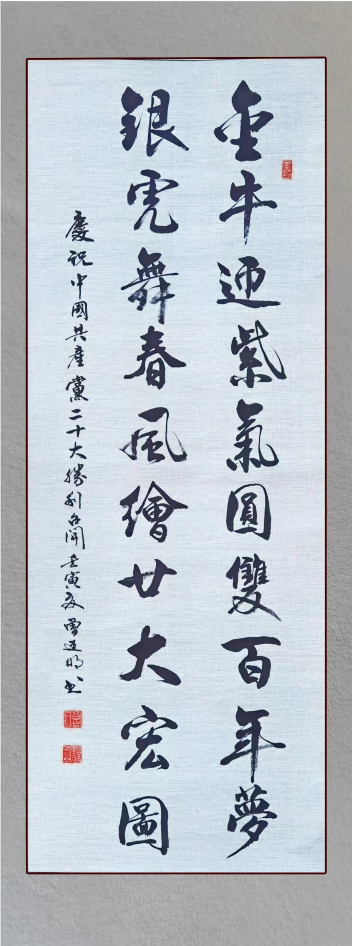 金牛迎紫氣圓雙百年夢
銀虎舞春風繪廿大宏圖
慶祝中國共產黨二十大勝利召開壬寅夏曾連明書